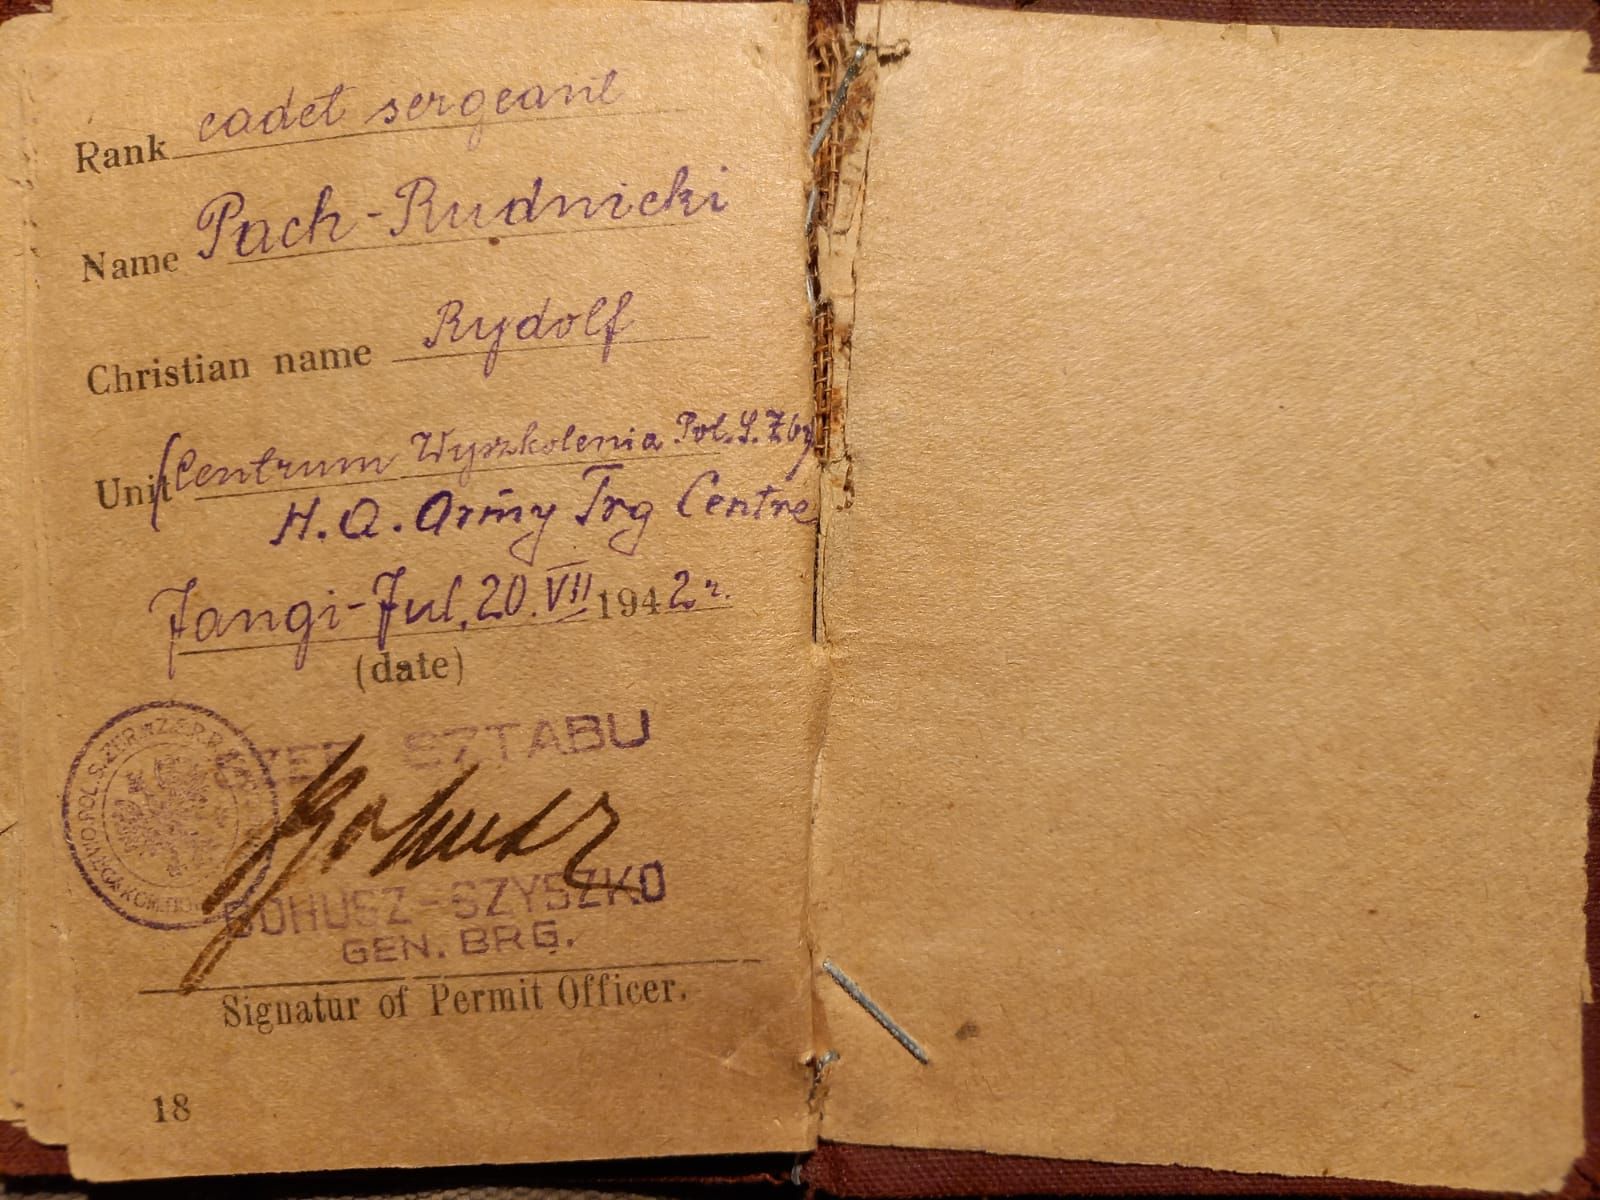 Rank cadet sergeant
Name Pach-Rudnicki
Christian name Rydolf
Unit (Centrum Wyszkolenia Pol. S. Zbr
H.Q. Army Trg Centre
Jangi-Jul, 20. VII 1942 r.
(date)
SZEF SZTABU
Bohusz
BOHUSZ-SZYSZKO
GEN. BRG.
Signatur of Permit Officer.
18